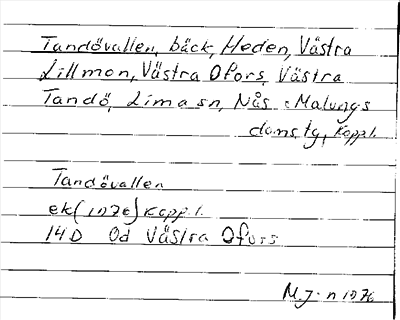 Tandövallen, bäck, Heden, Västra
Lillmon, Västra Ofors, Västra
Tandö, Lima sn, Nås o Malungs
doms, tg, Koppl.
Tandövallen
ek (1976) Koppl.
14D 0d Västra Ofors
M.J-n 1976